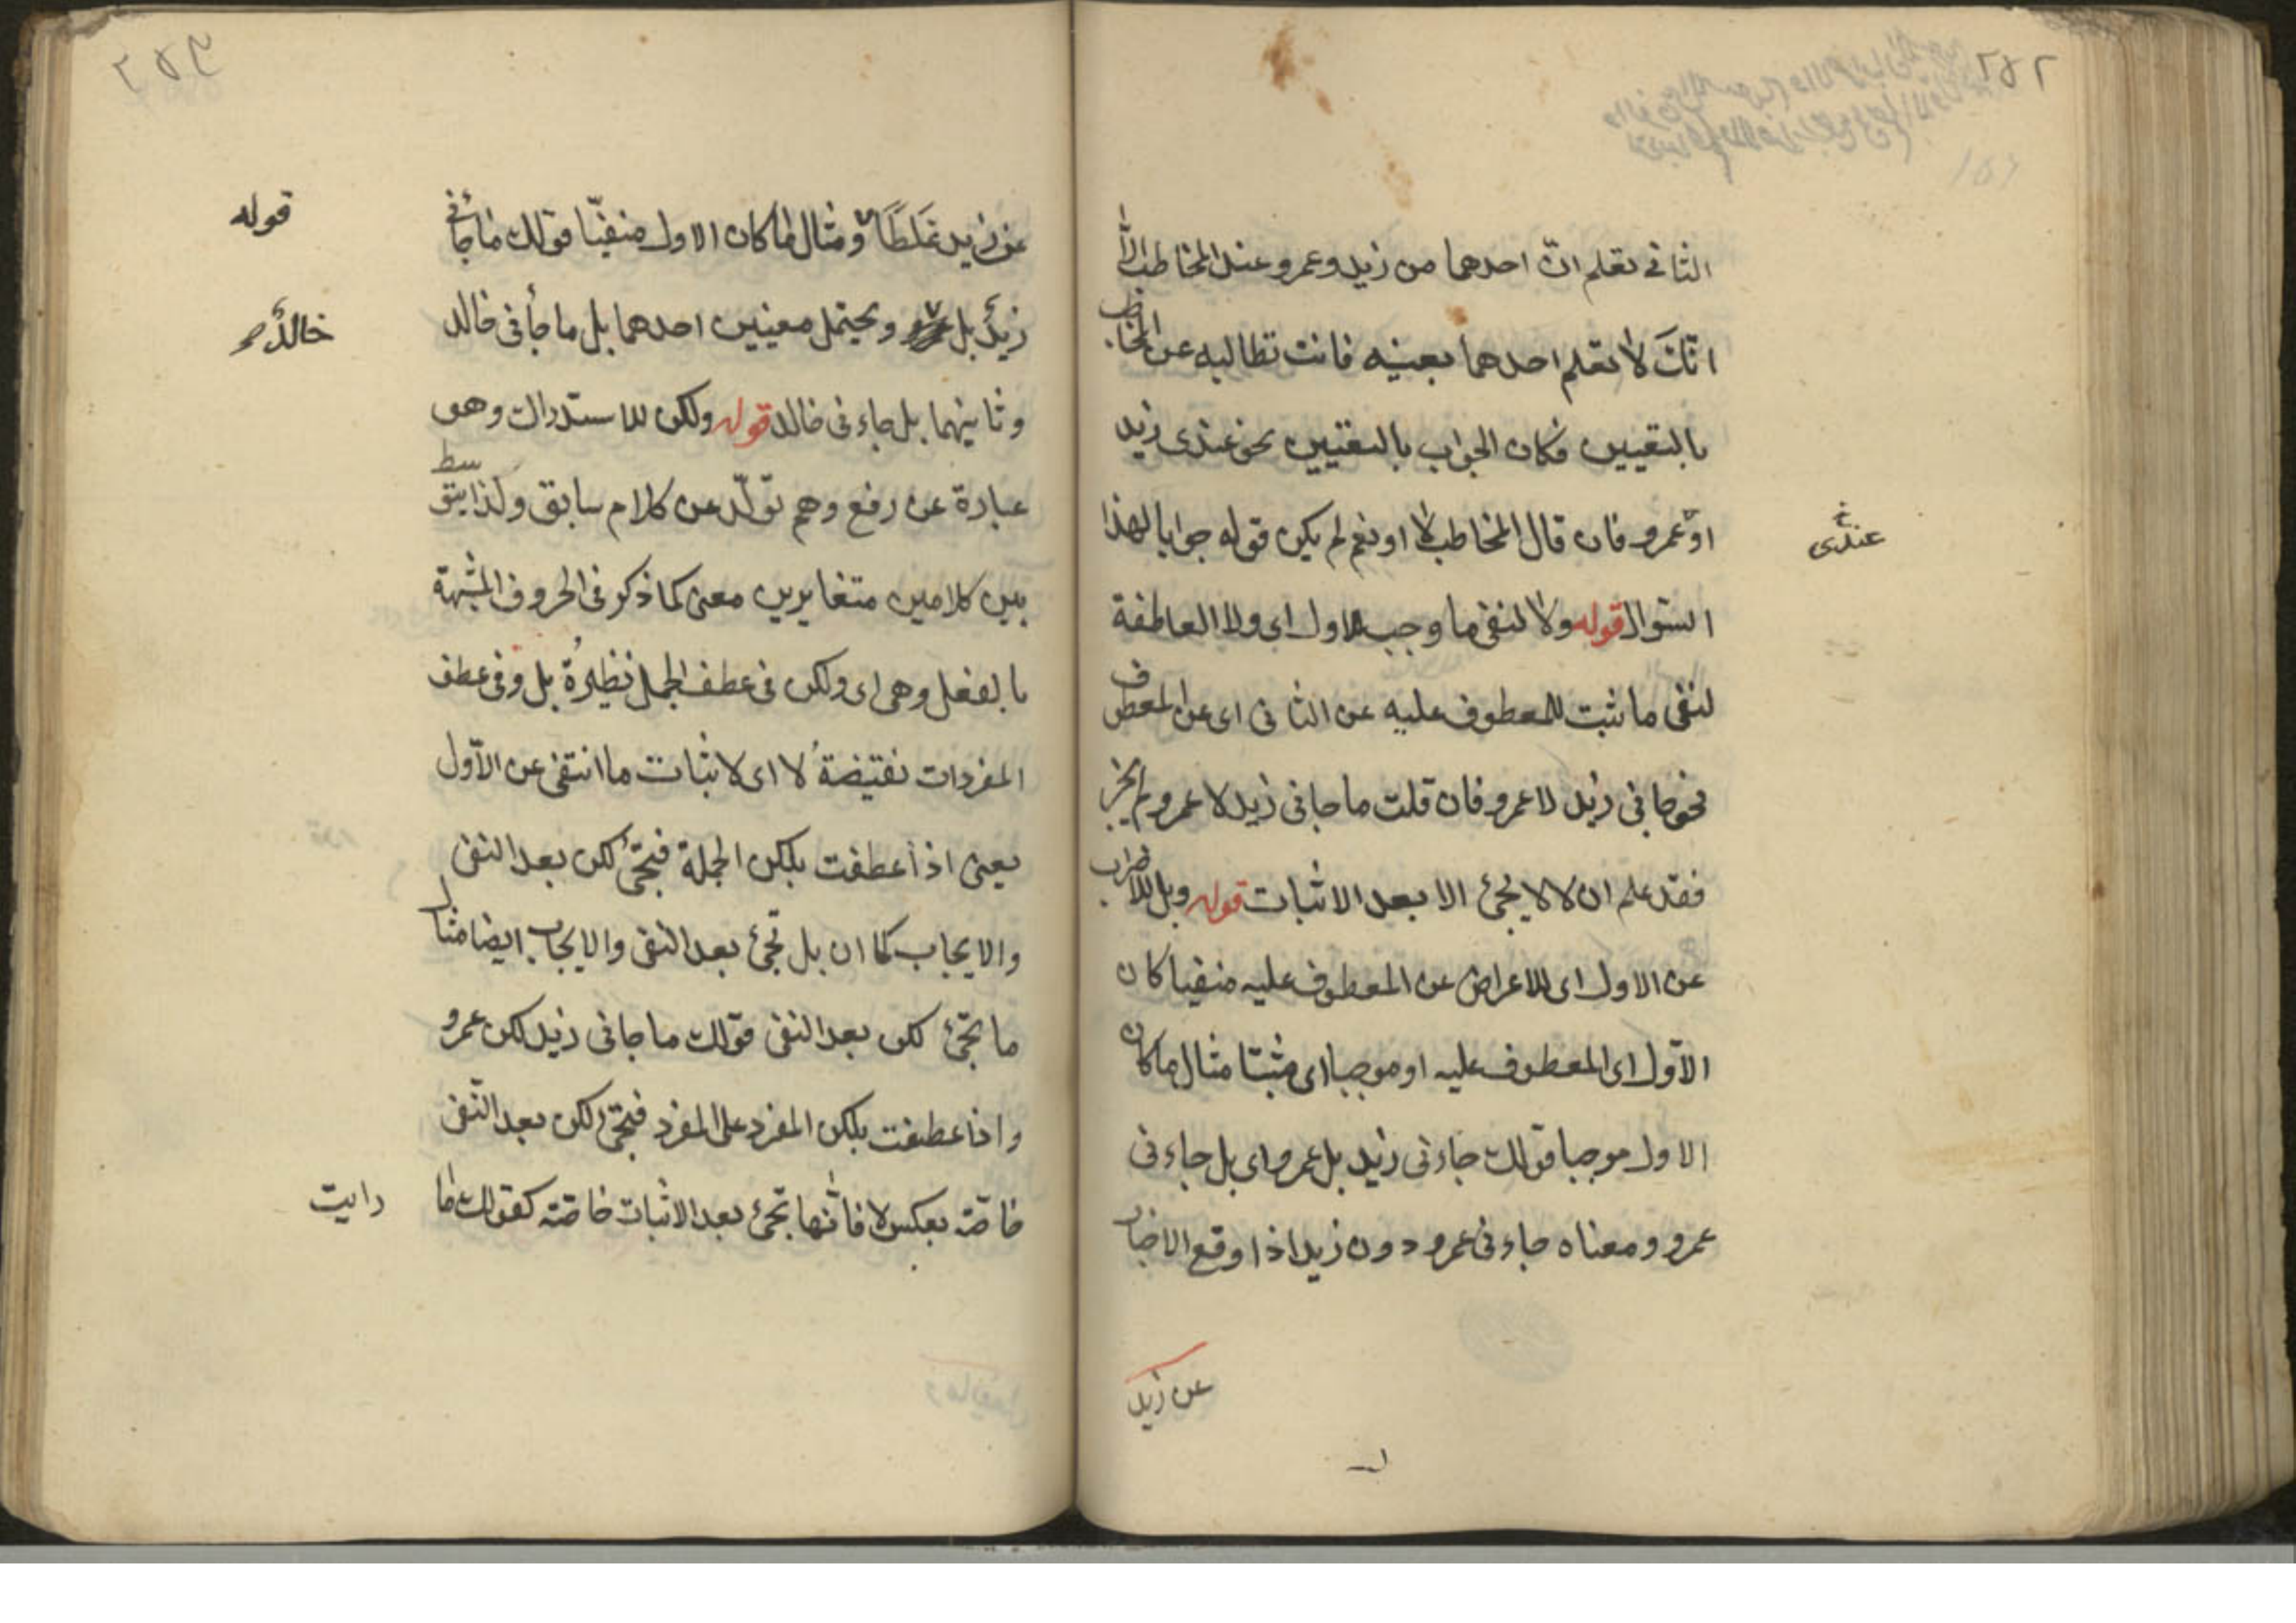 ٢٥٢
الثانى تعلم انّ احدهما من زيد وعمرو عند المخاطب الّا
انّك لا تعلم احدهما بعينه فانت تطالبه عن المخاطب
بالتعيين فكان الجواب بالتعيين نحو عندى زيد
او عمرو فان قال المخاطب لا او نعم لم يكن قوله جوابا لهذا
عندى
السؤال قوله ولا لنفى ما وجب للاول اى ولا العاطفة
لنفى ما ثبت للمعطوف عليه عن الثانى اى عن المعطوف
نحو جانى زيد لا عمرو فان قلت ما جانى زيد لا عمرو لم يجز
فقد علم ان لا لا يجئ الا بعد الاثبات قوله وبل للاضراب
عن الاول اى للاعراض عن المعطوف عليه منفيا كان
الاوّل اى المعطوف عليه او موجبا اى مثبتا مثال ما كان
الاول موجبا قولك جاءنى زيد بل عمرو اى بل جاءنى
عمرو ومعناه جاءنى عمرو دون زيد اذا وقع الاخبار
عن زيد
٢٥٣
عن زيد غلطًا ومثال ما كان الاول منفيّا قولك ما جأنى
قوله
زيدٌ بل ويحتمل معنيين احدهما بل ما جأنى خالد
خالدٌ صح
وثانيهما بل جاءنى خالد قوله ولكن للاستدراك وهو
عبارة عن رفع وهم تولّد عن كلام سابق ولذا يتوسط
بين كلامين متغايرين معنى كما ذكر فى الحروف المشبهة
بالفعل وهى اى ولكن فى عطف الجمل نظيرةُ بل وفى عطف
المفردات نقيضةُ لا اى لاثبات ما انتفى عن الاوّل
يعنى اذا عطفت بلكن الجملة فيجئ لكن بعد النفى
والايجاب كما ان بل تجئ بعد النفى والايجاب ايضا مثال
ما تجئ لكن بعد النفى قولك ما جانى زيد لكن عمرو
واذا عطفت بلكن المفرد على المفرد فيجئ لكن بعد النّفى
خاصّة بعكس لا فانّها تجئ بعد الاثبات خاصّة كقولك ما
رايت